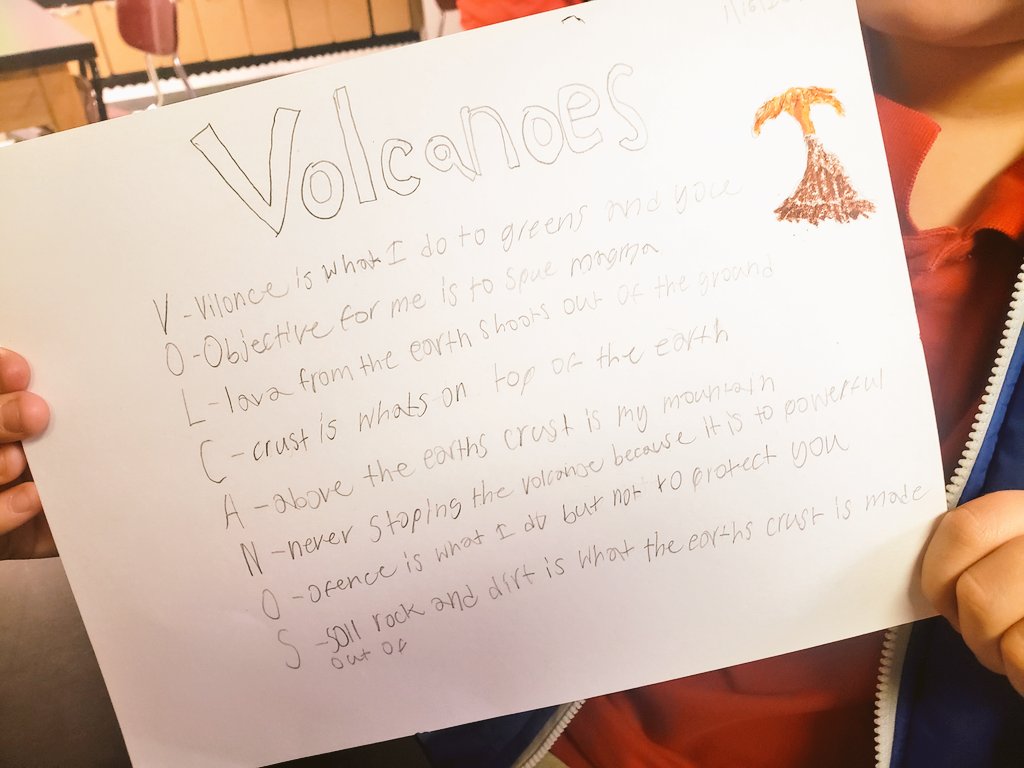 1/16/20
Volcanoes
V - Vilonce is what I do to greens and you
O - Objective for me is to spue magma
L - lava from the earth shoots out of the ground
C - crust is whats on top of the earth
A - above the earths crust is my mountain
N - never stoping the volcanoe because it is to powerful
O - ofence is what I do but not to protect you
S - soil rock and dirt is what the earths crust is made
out of